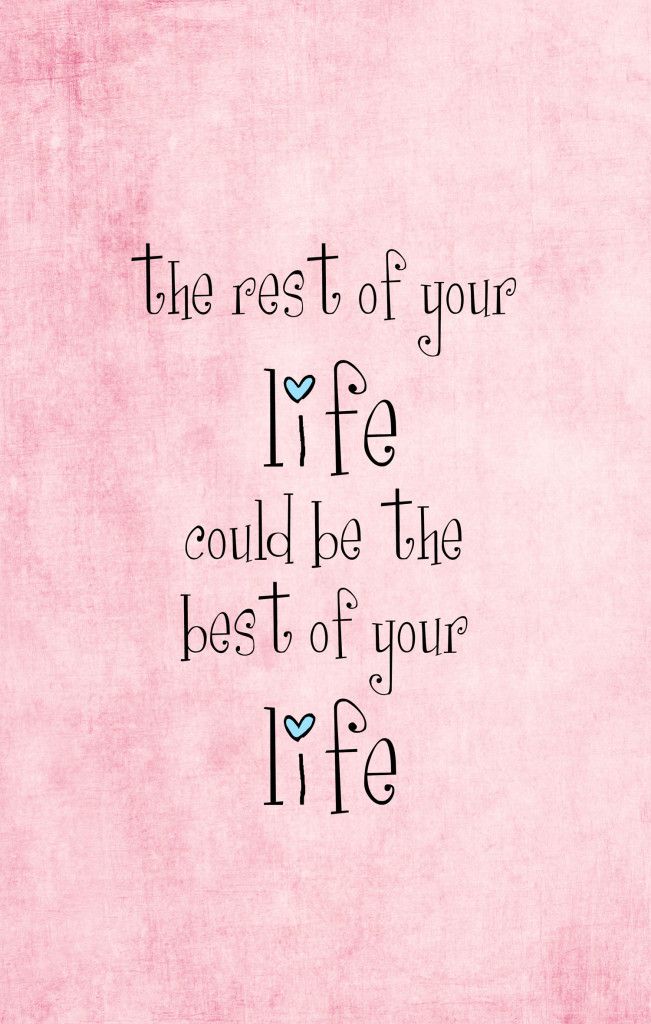 the rest of your
life
could be the
best of your
life